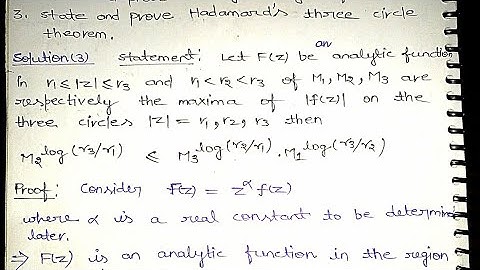 3. state and prove Hadamard's three circle
theorem.
Solution(3) statement: Let F(z) be an analytic function
In r₁ ≤ |z| ≤ r₃ and r₁ < r₂ < r₃ of M₁, M₂, M₃ are
respectively the maxima of |f(z)| on the
three circles |z| = r₁, r₂, r₃ then
M₂^log(r₃/r₁) ≤ M₃^log(r₂/r₁) . M₁^log(r₃/r₂)
Proof: Consider F(z) = z^α f(z)
where α is a real constant to be determin
later.
⇒ F(z) is an analytic function in the region